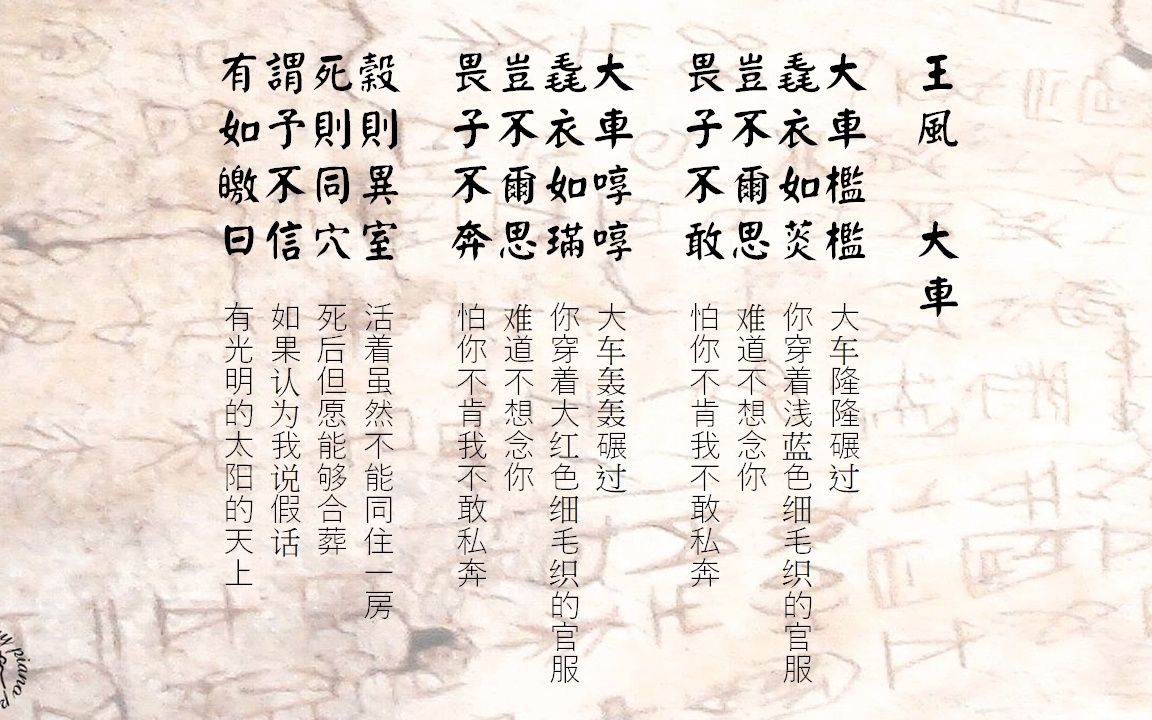 王風 大車
大車檻檻
毳衣如菼
豈不爾思
畏子不敢
大車啍啍
毳衣如璊
豈不爾思
畏子不奔
穀則異室
死則同穴
謂予不信
有如皦日
大车隆隆碾过
你穿着浅蓝色细毛织的官服
难道不想念你
怕你不肯我不敢私奔
大车轰轰碾过
你穿着大红色细毛织的官服
难道不想念你
怕你不肯我不敢私奔
活着虽然不能同住一房
死后但愿能够合葬
如果认为我说假话
有光明的太阳的天上
piano